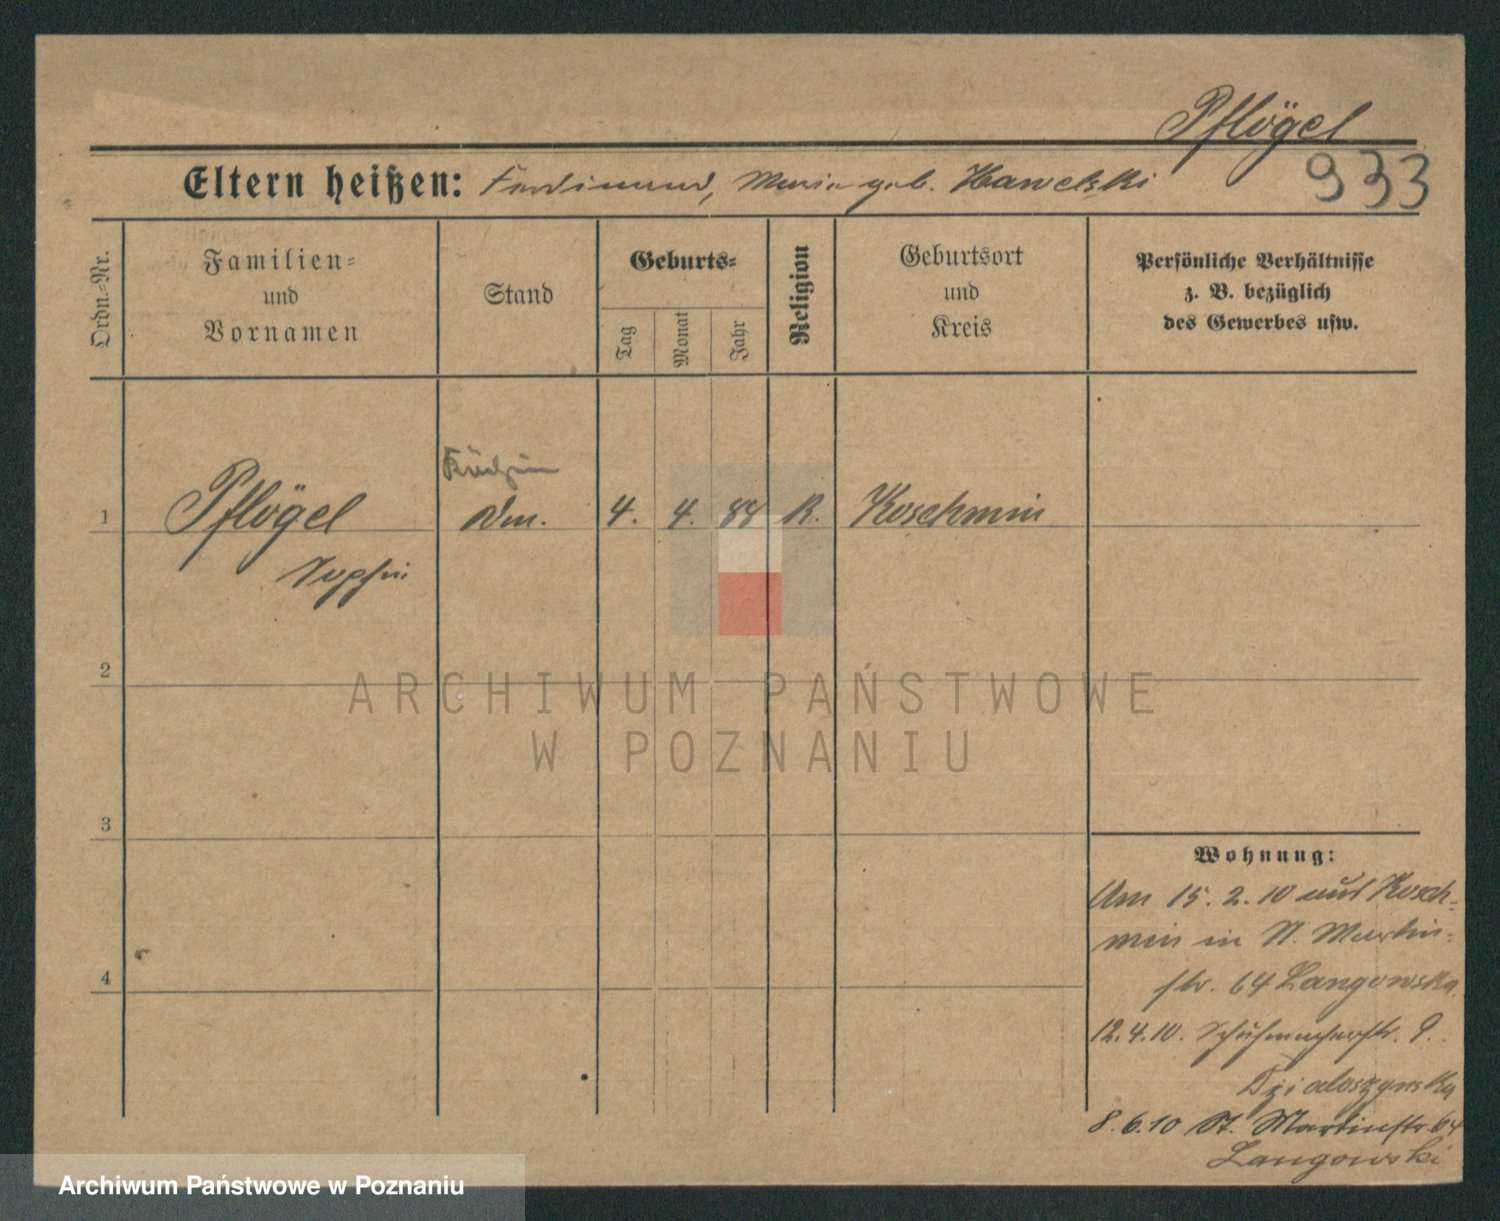 Pflögel
933
Eltern heißen: Ferdinand, Maria geb. Hawelski
Ordn.-Nr.
Familien-
und
Vornamen
Stand
Geburts-
Tag
Monat
Jahr
Religion
Geburtsort
und
Kreis
Persönliche Verhältnisse
z. B. bezüglich
des Gewerbes usw.
Köchin
1 Pflögel 4. 4. 88 R. Koschmin
Sophie
2
3
4
Wohnung:
Am 15. 2. 10 aus Kosch-
min in St. Martin-
str. 64 Langowska.
12.4.10. Schuhmacherstr. 9.
Dzialoszynska
8.6.10 St. Martinstr. 64
Langowski
ARCHIWUM PAŃSTWOWE
W POZNANIU
Archiwum Państwowe w Poznaniu